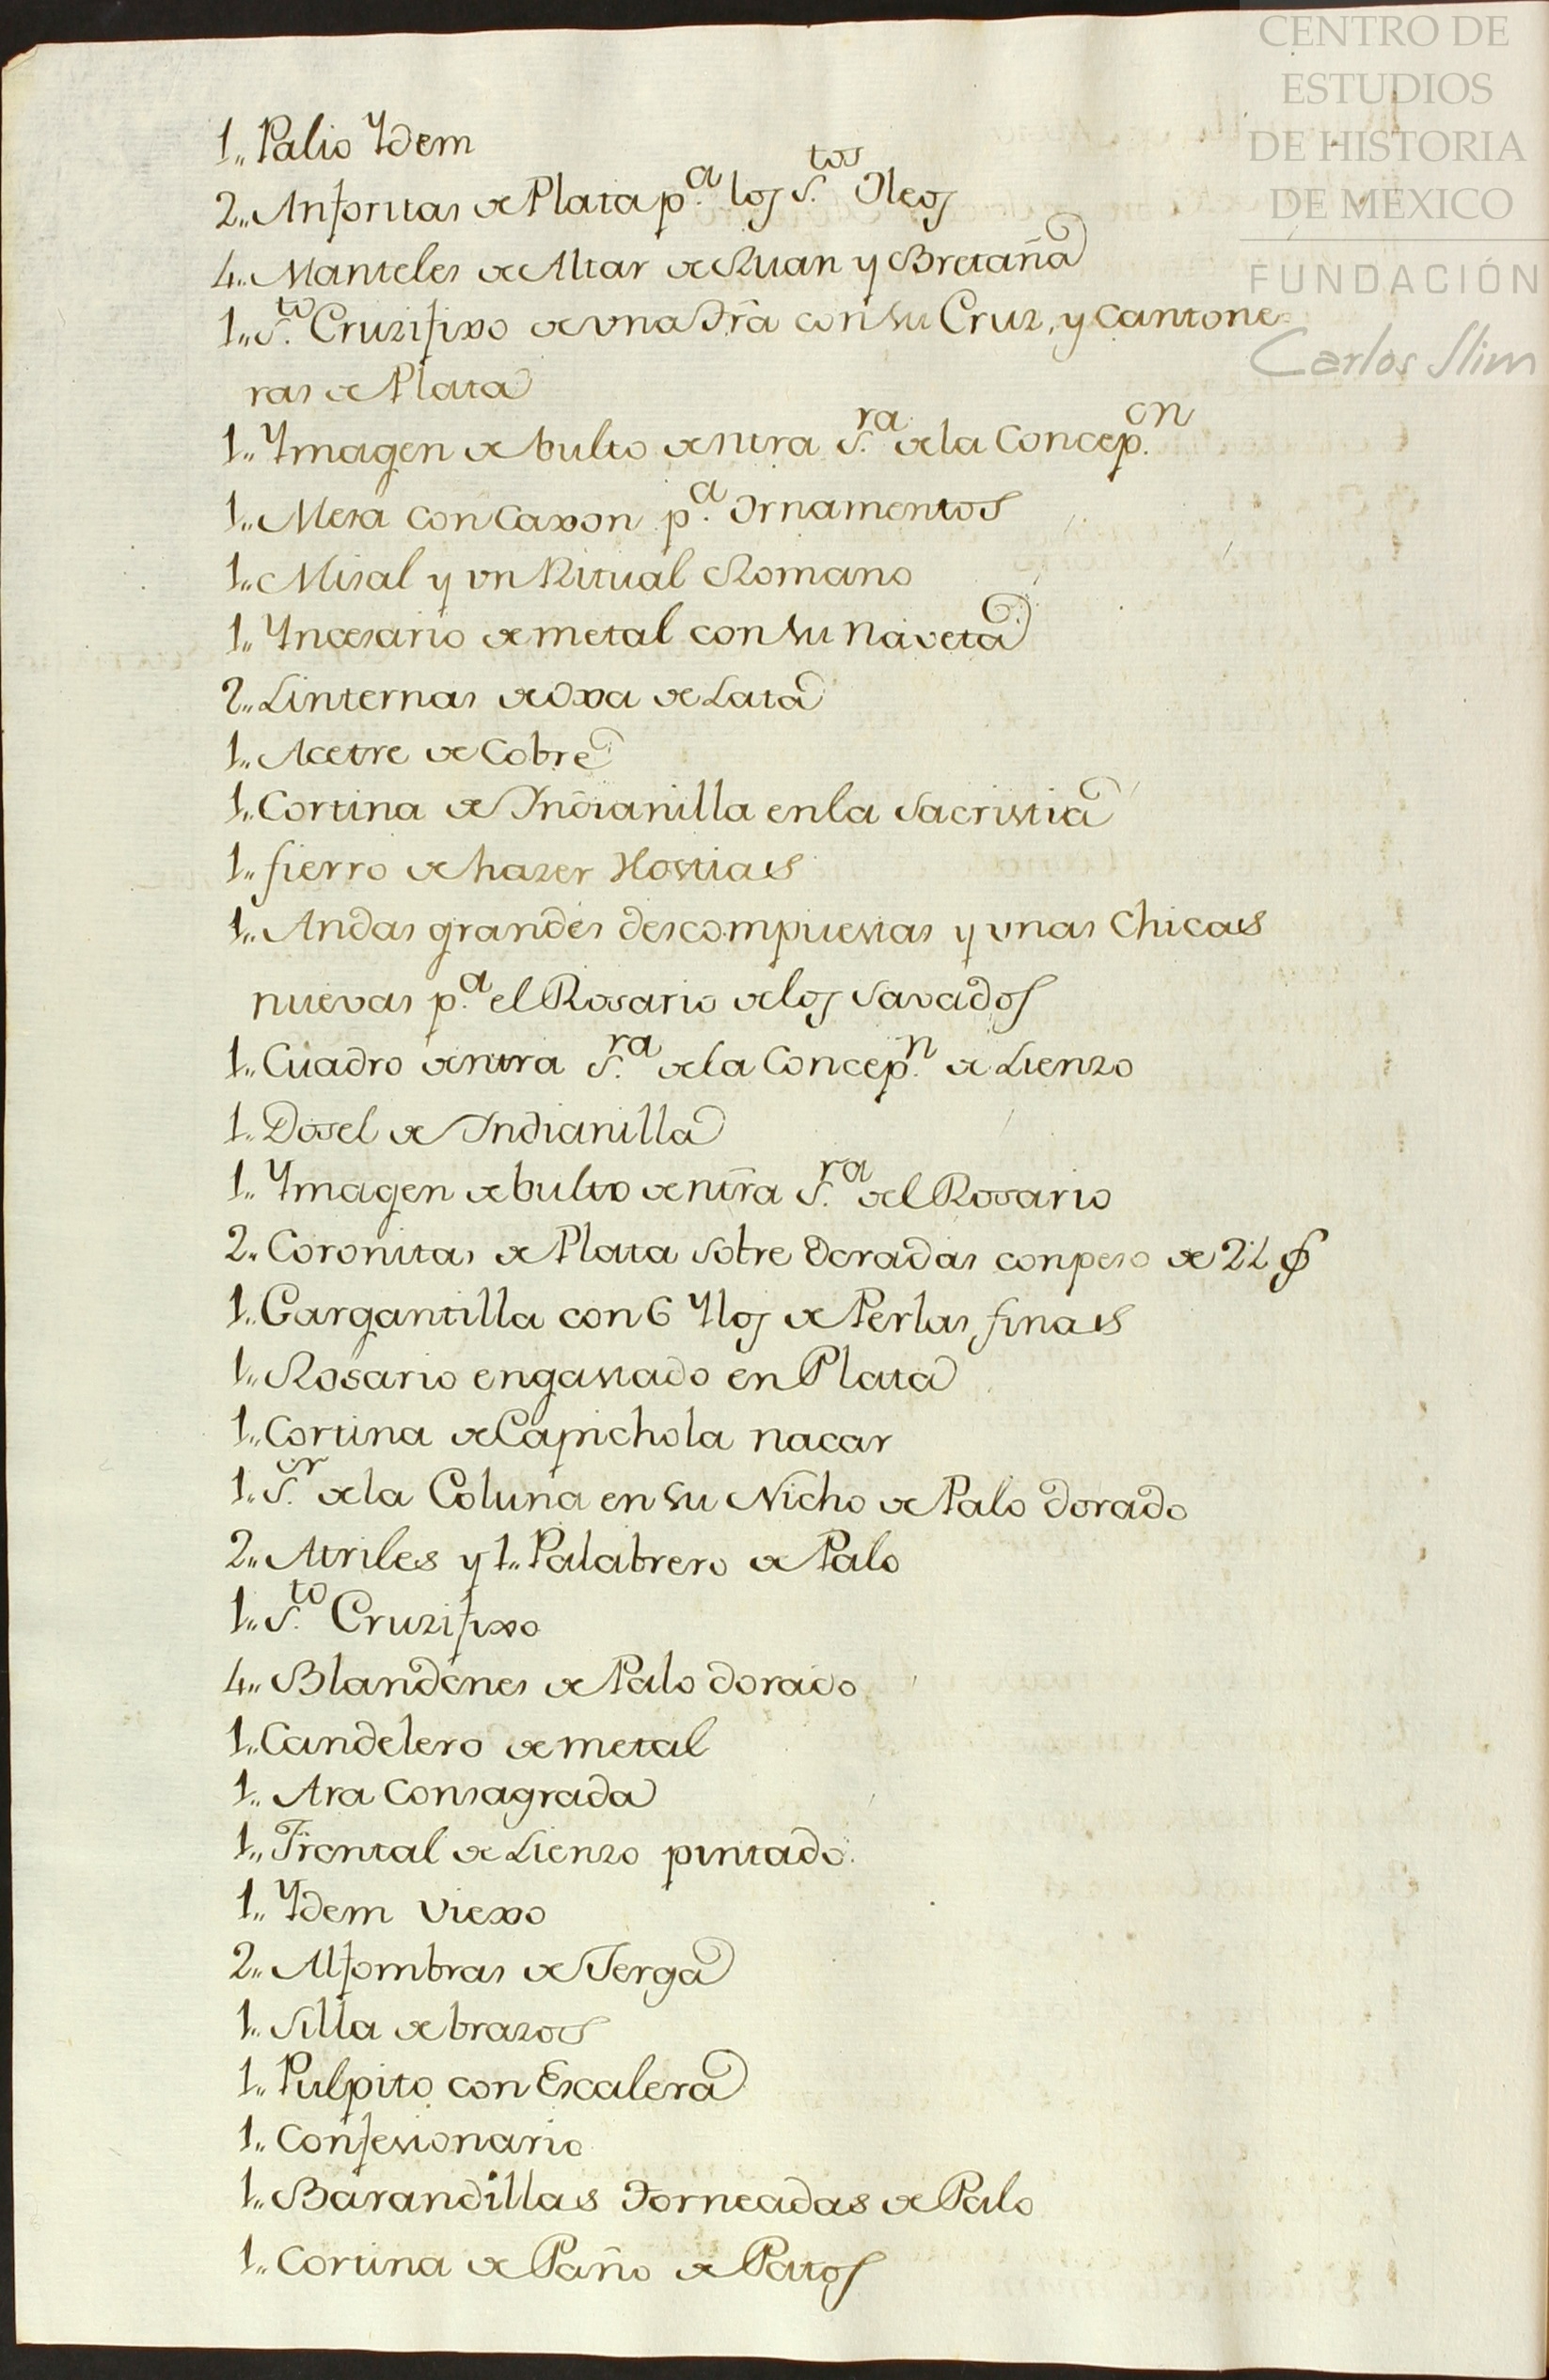 CENTRO DE
ESTUDIOS
DE HISTORIA
DE MÉXICO
FUNDACIÓN
Carlos Slim
1,, Palio Ydem
2,, Anforitas de Plata p.ª los S.tos Oleos
4,, Manteles de Altar de Ruan y Bretaña
1,, S.to Cruzifixo de vna 3ra con su Cruz, y Cantone
ras de Plata
1,, Ymagen de bulto de ntra S.ra de la Concep.on
1,, Mesa con Caxon p.ª Ornamentos
1,, Misal y vn Ritual Romano
1,, Yncesario de metal con su Naveta
2,, Linternas de Oxa de Lata
1,, Acetre de Cobre
1,, Cortina de Indianilla en la Sacristia
1,, fierro de hazer Hostias
1,, Andas grandes descompuestas y vnas Chicas
nuevas p.ª el Rosario de los Savados
1,, Cuadro de ntra S.ra de la Concep.n de Lienzo
1,, Dosel de Indianilla
1,, Ymagen de bulto de ntra S.ra del Rosario
2,, Coronitas de Plata sobre doradas con peso de
1,, Gargantilla con 6 Ylos de Perlas finas
1,, Rosario engastado en Plata
1,, Cortina de Capichola nacar
1,, S.or de la Coluna en su Nicho de Palo dorado
2,, Atriles y 1,, Palabrero de Palo
1,, S.to Cruzifixo
4,, Blandones de Palo dorado
1,, Candelero de metal
1,, Ara Consagrada
1,, Frontal de Lienzo pintado
1,, Ydem viexo
2,, Alfombras de Jerga
1,, Silla de brazos
1,, Pulpito con Escalera
1,, Confesionario
1,, Barandillas torneadas de Palo
1,, Cortina de Paño de Patos